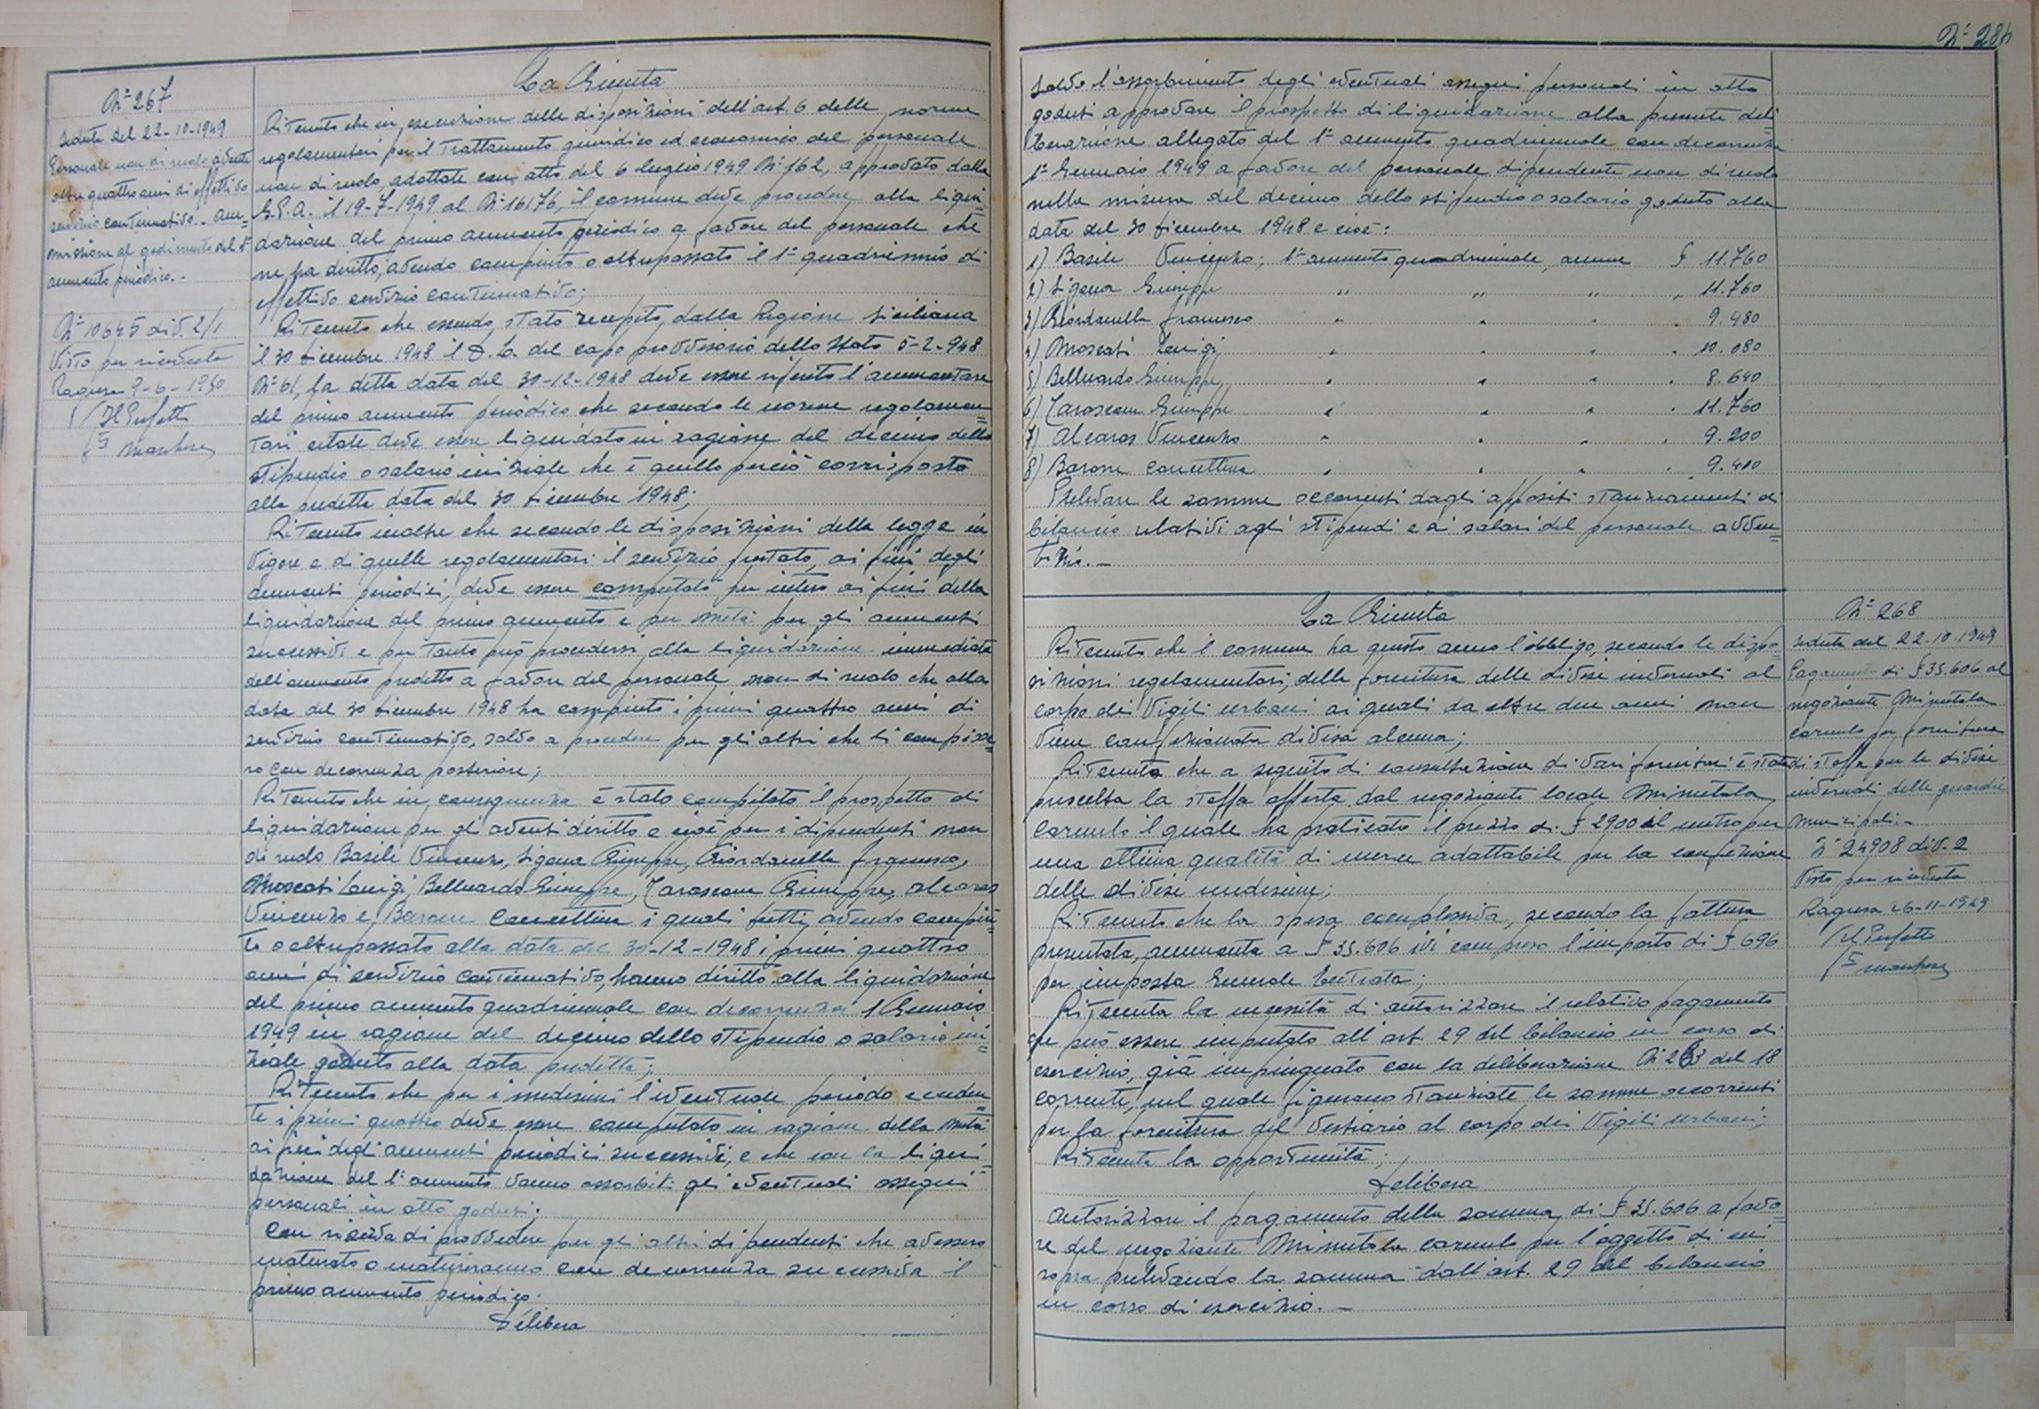 N° 267
Seduta del 22-10-1949
Personale non di ruolo avente
oltre quattro anni di effettivo
servizio continuativo.- Am=
missione al godimento del 1°
aumento periodico.-
N° 10645 div. 2/1
Visto per ricevuta
Ragusa 9-6-1950
p/ Il Prefetto
La Giunta
Ritenuto che in esecuzione delle disposizioni dell'art. 6 delle norme
regolamentari per il trattamento giuridico ed economico del personale
non di ruolo, adottate con atto del 6 luglio 1949 N° 162, approvato dalla
G.P.A. il 19-7-1949 al N° 16176, il comune deve procedere alla liqui=
dazione del primo aumento periodico a favore del personale che
ne ha diritto, avendo compiuto o oltrepassato il 1° quadriennio di
effettivo servizio continuativo;
Ritenuto che essendo stato recepito dalla Regione Siciliana
il 30 dicembre 1948 il D.L. del capo provvisorio dello Stato 5-2-948
N° 61, la detta data del 30-12-1948 deve essere riferito l'ammontare
del primo aumento periodico che secondo le norme regolamen=
tari citate deve essere liquidato in ragione del decimo dello
stipendio o salario iniziale che è quello perciò corrisposto
alla predetta data del 30 dicembre 1948;
Ritenuto inoltre che secondo le disposizioni della legge in
vigore e di quelle regolamentari il servizio prestato, ai fini degli
aumenti periodici, deve essere computato per intero ai fini della
liquidazione del primo aumento e per metà per gli aumenti
successivi e per tanto può procedersi alla liquidazione immediata
dell'aumento predetto a favore del personale non di ruolo che alla
data del 30 dicembre 1948 ha compiuto i primi quattro anni di
servizio continuativo, salvo a procedere per gli altri che li compisse=
ro con decorrenza posteriore;
Ritenuto che in conseguenza è stato compilato il prospetto di
liquidazione per gli aventi diritto e cioè per i dipendenti non
di ruolo Basile Vincenzo, Ligona Giuseppe, Giordanella Francesco,
Moscati Luigi, Belluardo Giuseppe, Tarascone Giuseppe, Alcaras
Vincenzo e Barone Concettina i quali tutti, avendo compiu=
to o oltrepassato alla data del 30-12-1948 i primi quattro
anni di servizio continuativo, hanno diritto alla liquidazione
del primo aumento quadriennale con decorrenza 1 Gennaio
1949 in ragione del decimo dello stipendio o salario ini=
ziale goduto alla data predetta;
Ritenuto che per i medesimi l'eventuale periodoecceden=
te i primi quattro deve essere computato in ragione della metà
ai fini degli aumenti periodici successivi, e che con la liqui=
dazione del 1° aumento vanno assorbiti gli eventuali assegni
personali in atto goduti;
Con riserva di provvedere per gli altri dipendenti che avessero
maturato o matureranno con decorrenza successiva il
primo aumento periodico.
Delibera
N° 284
Salvo l'assorbimento degli eventuali assegni personali in atto
goduti approvare il prospetto di liquidazione alla presente deli=
berazione allegato del 1° aumento quadriennale con decorrenza
1° Gennaio 1949 a favore del personale dipendente non di ruolo
nella misura del decimo dello stipendio o salario goduto alla
data del 30 dicembre 1948 e cioè:
1) Basile Vincenzo; 1° aumento quadriennale, annue £ 11.760
2) Ligona Giuseppe " " " " 11.760
3) Giordanella Francesco " " " " 9.480
4) Moscati Luigi " " " " 10.080
5) Belluardo Giuseppe " " " " 8.640
6) Tarascone Giuseppe " " " " 11.760
7) Alcaras Vincenzo " " " " 9.200
8) Barone Concettina " " " " 9.480
Prelevare le somme occorrenti dagli appositi stanziamenti di
bilancio relativi agli stipendi e ai salari del personale avven=
tizio.-
La Giunta
Ritenuto che il comune ha questo anno l'obbligo, secondo le dispo
sizioni regolamentari, della fornitura delle divise invernali al
corpo dei Vigili urbani ai quali da oltre due anni non
viene confezionata divisa alcuna;
Ritenuto che a seguito di consultazione di vari fornitori è stata
prescelta la stoffa offerta dal negoziante locale Minutola
Carmelo il quale ha praticato il prezzo di £ 2900 il metro per
una ottima qualità di merce adattabile per la confezione
delle divise medesime;
Ritenuto che la spesa complessiva, secondo la fattura
presentata, ammonta a £ 35.606 ivi compreso l'importo di £ 696
per imposta Generale Entrata;
Ritenuta la necessità di autorizzare il relativo pagamento
che può essere imputato all'art. 29 del bilancio in corso di
esercizio, già impinguato con la deliberazione N° 263 del 18
corrente, nel quale figurano stanziate le somme occorrenti
per la fornitura del vestiario al corpo dei Vigili urbani;
Ritenuta la opportunità;
Delibera
Autorizzare il pagamento della somma di £ 35.606 a favo=
re del negoziante Minutola Carmelo per l'oggetto di cui
sopra prelevando la somma dall'art. 29 del bilancio
in corso di esercizio.-
N° 268
Seduta del 22-10-1949
Pagamento di £ 35.606 al
negoziante Minutola
Carmelo per fornitura
di stoffa per le divise
invernali delle guardie
Municipali.-
N° 24908 div. 2
Visto per ricevuta
Ragusa 26-11-1949
p/ Il Prefetto